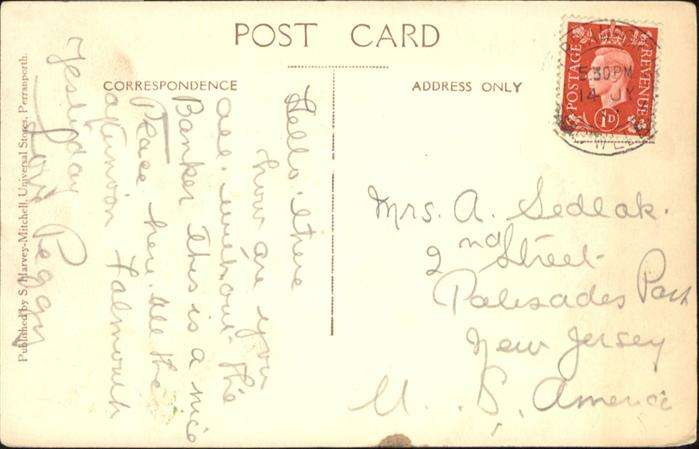 POST CARD
CORRESPONDENCE
ADDRESS ONLY
Hello there
how are you
all. without the
Banker This is a nice
Place here. all the
afternoon Falmouth
Yesterday
Love Peggy
Mrs. A. Sedlak.
2nd Street
Palisades Park
New Jersey
U. S. America
POSTAGE
REVENUE
1D
5.30PM
14 JY
Published by S. Harvey-Mitchell, Universal Stores, Perranporth.